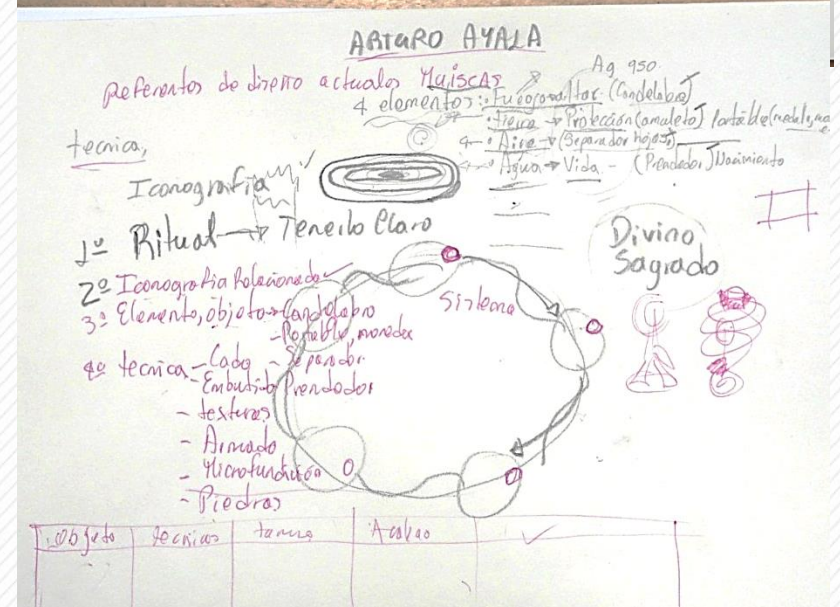 ARTURO AYALA
Referentes de diseño actuales Muiscas
Ag 950
4 elementos: Fuego altar (Candelabro)
tierra → Protección (amuleto) Portable
Aire → (Separador hojas)
Agua → Vida - (Prendedor) Nacimiento
tecnica,
Iconografia
1º Ritual → Tenerlo Claro
2º Iconografia Relacionada
3º Elemento, objeto → Candelabro
- Portable, monedex
- Separador
Prendedor
4º tecnica - Cado
- Embutido
- texturas
- Armado
- Microfundición
- Piedras
Sistema
Divino
Sagrado
Objeto tecnicas